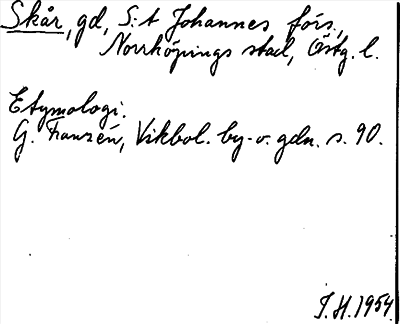 Skår, gd, S:t Johannes förs.,
Norrköpings stad, Östg. l.
Etymologi.
G. Franzén, Vikbol. by- o. gdn. s. 90.
I.H. 1954